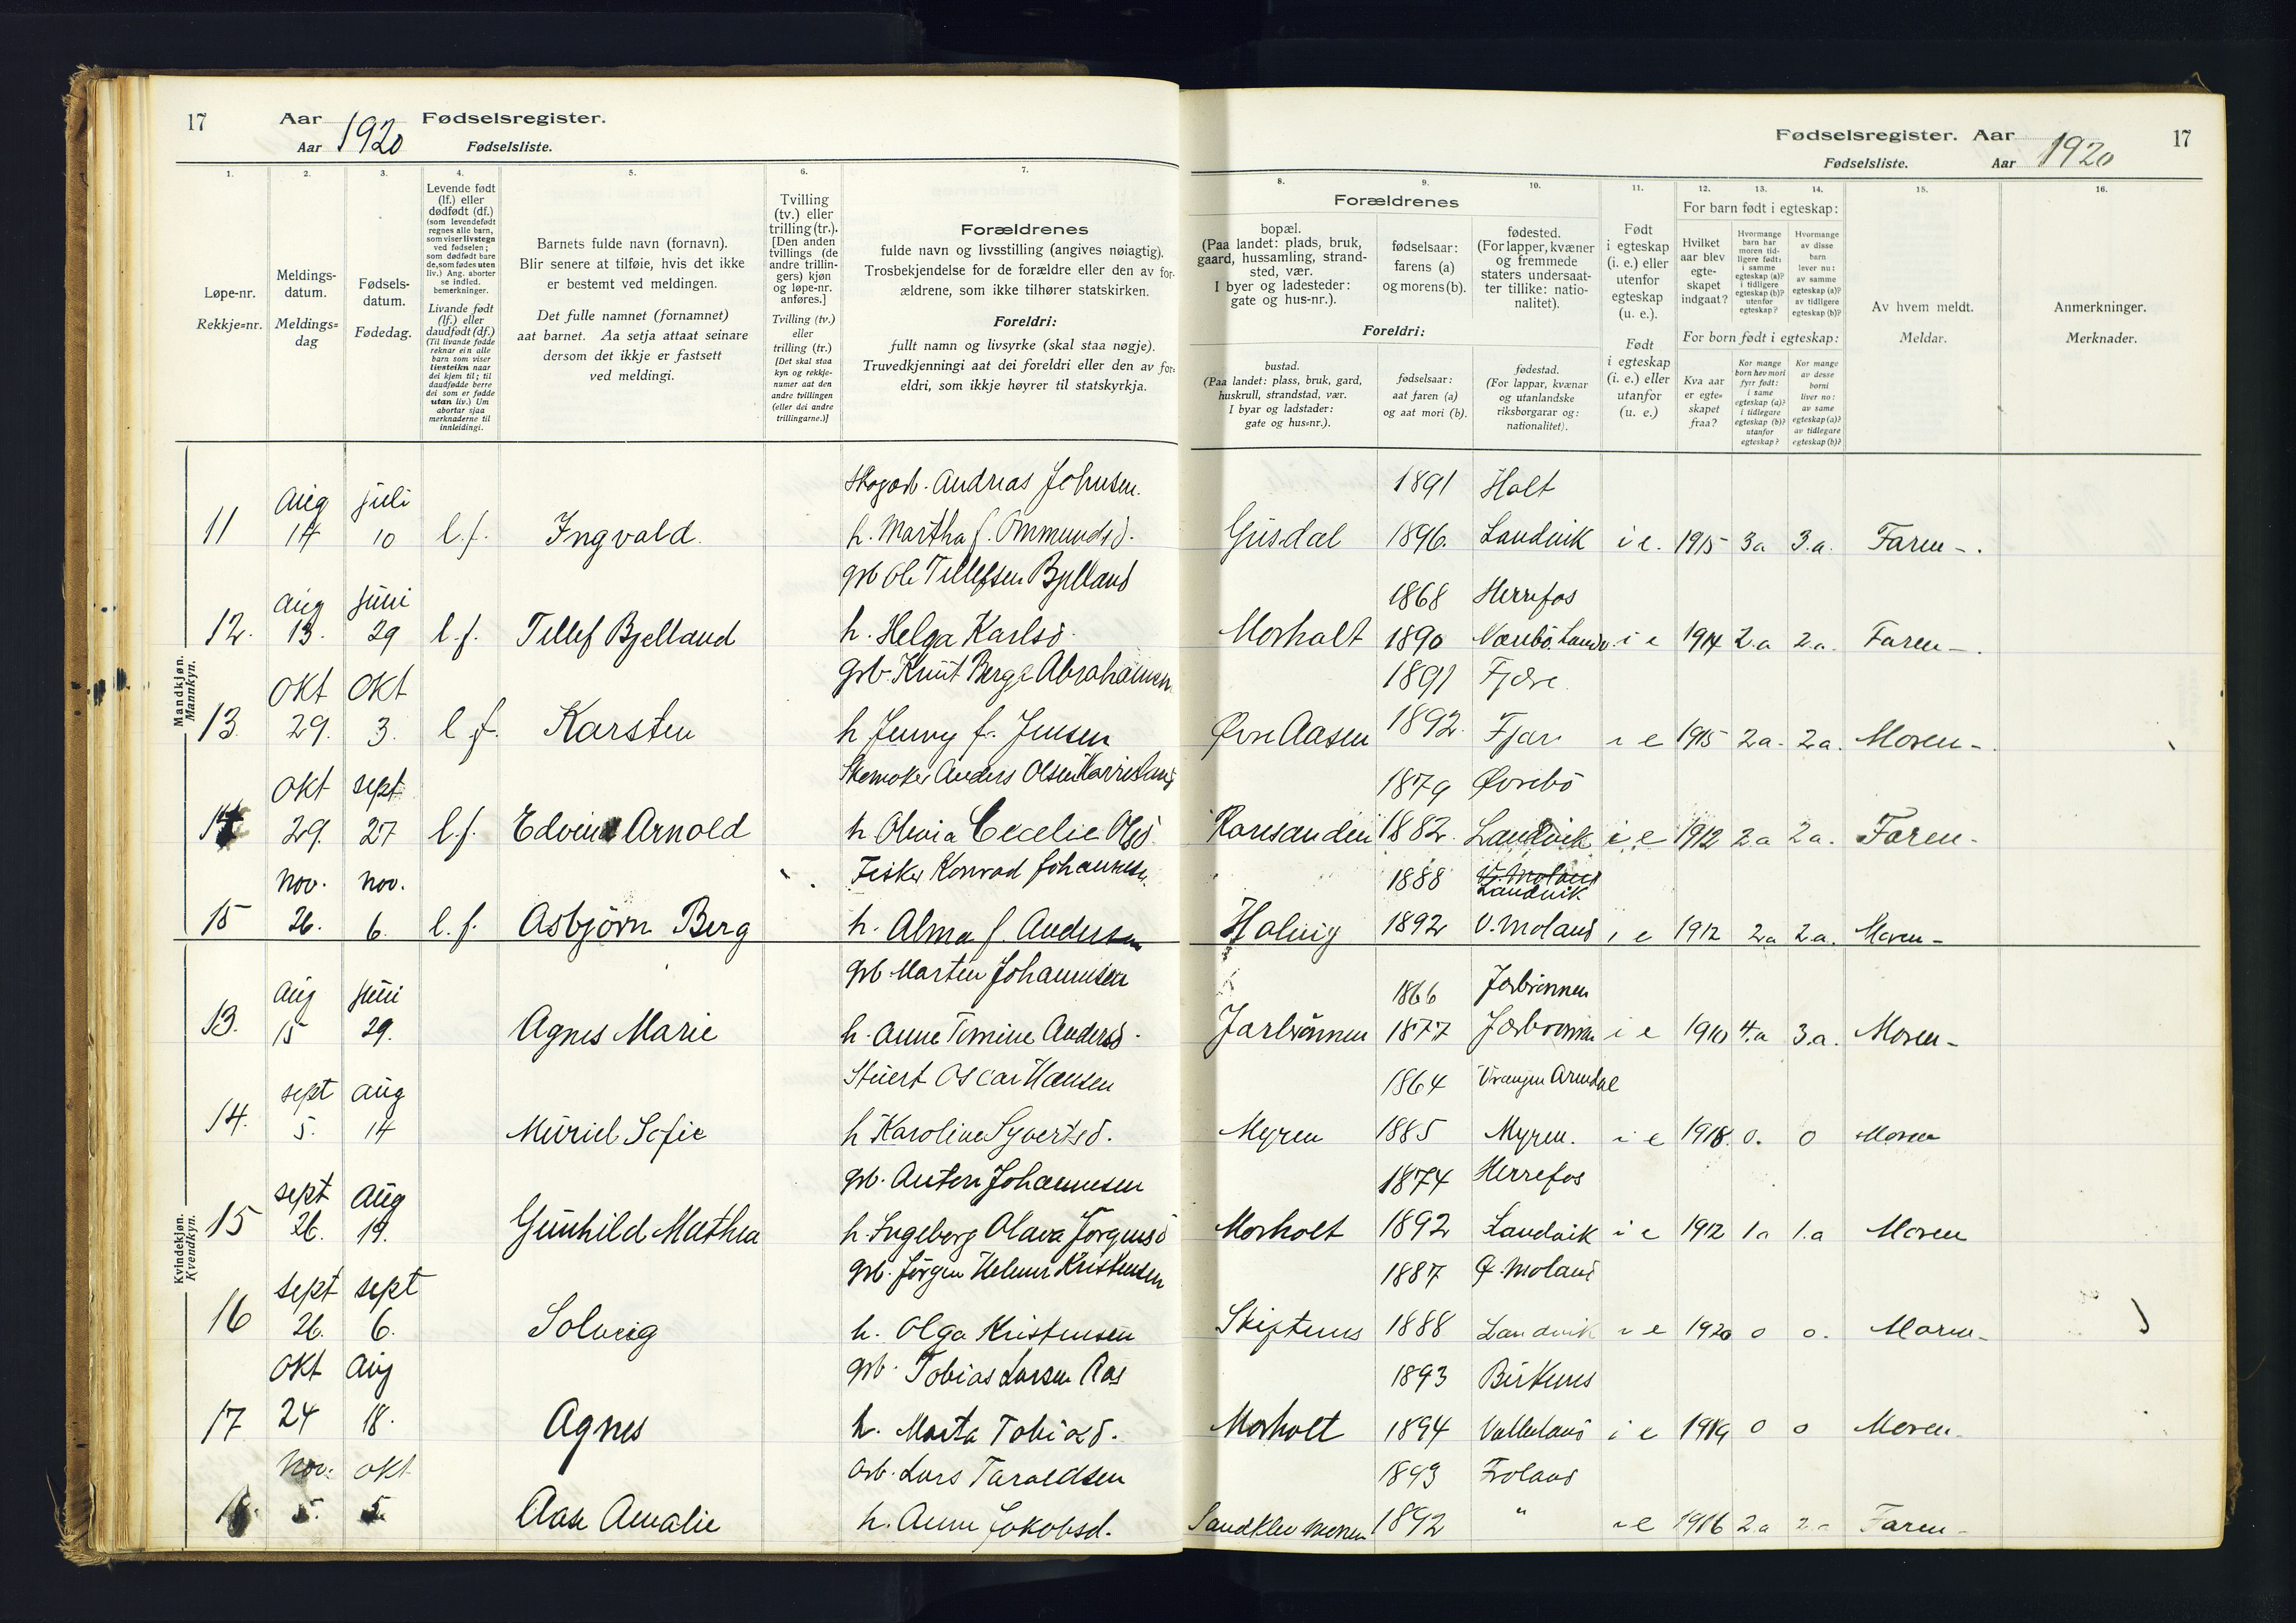 17 Aar 1920 Fødselsregister.
Aar Fødselsliste.
Fødselsregister. Aar 1920 17
Fødselsliste. Aar
1. 2. 3. 4. 5. 6. 7. 8. 9. 10. 11. 12. 13. 14. 15. 16.
Løpe-nr.
Rekkje=nr.
Meldings-
datum.
Meldings=
dag
Fødsels-
datum.
Fødedag.
Levende født
(lf.) eller
dødfødt (df.)
(som levendefødt
regnes alle barn,
som viser livstegn
ved fødselen;
som dødfødt bare
de, som fødes uten
liv.) Ang. aborter
se indled.
bemerkninger.
Livande født
(lf.) eller
daudfødt (df.)
(Til livande fødde
reknar ein alle
barn som viser
livsteikn naar
dei kjem til; til
daudfødde berre
dei som er fødde
utan liv.) Um
abortar sjaa
merknaderne til
innleidingi.
Barnets fulde navn (fornavn).
Blir senere at tilføie, hvis det ikke
er bestemt ved meldingen.
Det fulle namnet (fornamnet)
aat barnet. Aa setja attaat seinare
dersom det ikkje er fastsett
ved meldingi.
Tvilling
(tv.) eller
trilling (tr.).
[Den anden
tvillings (de
andre trillin-
gers) kjøn
og løpe-nr.
anføres.]
Tvilling (tv.)
eller
trilling (tr.)
[Det skal staa
kyn og rekkje-
numer aat den
andre tvillingen
(eller dei andre
trillingarne.)]
Forældrenes
fulde navn og livsstilling (angives nøiagtig).
Trosbekjendelse for de forældre eller den av for-
ældrene, som ikke tilhører statskirken.
Foreldri:
fullt namn og livsyrke (skal staa nøgje).
Truvedkjenningi aat dei foreldri eller den av for-
eldri, som ikkje høyrer til statskyrkja.
Forældrenes
bopæl.
(Paa landet: plads, bruk,
gaard, hussamling, strand-
sted, vær.
I byer og ladesteder:
gate og hus-nr.).
fødselsaar:
farens (a)
og morens (b).
fødested.
(For lapper, kvæner
og fremmede
staters undersaat-
ter tillike: natio-
nalitet).
Foreldri:
bustad.
(Paa landet: plass, bruk, gard,
huskrull, strandstad, vær.
I byar og ladstader:
gate og hus=nr.).
fødselsaar:
aat faren (a)
og aat mori (b).
fødestad.
(For lappar, kvænar
og utanlandske
riksborgarar og:
nationalitet).
Født
i egteskap
(i. e.) eller
utenfor
egteskap
(u. e.).
Født
i egteskap
(i. e.) eller
utanfor
(u. e.)
For barn født i egteskap:
Hvilket
aar blev
egte-
skapet
indgaat?
Hvormange
barn har
moren tid-
ligere født:
i samme
egteskap (a)?
i tidligere
egteskap (b)?
utenfor
egteskap?
Hvormange
av disse
barn
lever nu:
av samme
egteskap (a)?
av tidligere
egteskap (b)?
For born født i egteskap:
Kva aar
er egte=
skapet
fraa?
Kor mange
born hev mori
fyrr født:
i same
egteskap (a)?
i tidlegare
egteskap (b)?
utanfor
egteskap?
Kor mange
av desse
borni
liver no:
av same
egteskap (a)?
av tidlegare
egteskap (b)?
Av hvem meldt.
Meldar.
Anmerkninger.
Merknader.
Mandkjøn.
Mannkyn.
Andreas Johnsen. 1891 Holt
11 Aug 14 juli 10 l.f. Ingvald. h. Martha f. Ommundsd. Gusdal 1896. Landvik i e. 1915 3a 3.a. Faren -.
grb Ole Tellefsen Bjelland 1868 Herrefos
12. Aug 13. juni 29 l.f. Tellef Bjelland h. Helga Karlsd. Morholt 1890 i e 1914 2.a 2.a. Faren -.
grb. Knut Berge Abrahamsen 1891 Fjære
13. Okt 29. Okt 3. l f. Karsten h Jenny f. Jensen Øvre Aasen 1892. Fjære i e 1915 2a. 2a. Moren -.
Anders Olsen 1879 Øvrebö
14 Okt 29. sept 27 l.f. Edvin Arnold h Olivia Cecelie Olsd. 1882. Landvik i e 1912 2.a 2a. Faren -
Fisker Konrad Johannesen. 1888 V. Moland Landvik
15 Nov. 26. nov. 6. l.f. Asbjörn Berg h. Alma f. Andersen 1892 V. Moland i e 1912 2a 2.a. Moren -
Kvindekjøn.
Kvendkyn.
grb. Marten Johannesen 1866 Jorbrönnen
13. Aug 15 juni 29. Agnes Marie h. Anne Tomine Andersd. Jorbrönnen 1877 Jorbrönnen i e 1910 4.a 3.a. Moren -
Stuert Oscar Hansen 1864 Arendal
14. sept 5. aug 14 Muriel Sofie h Karoline Syvertsd. Myren 1885 Myren. i e 1918. 0. 0 Moren
grb. Anton Johannesen 1874 Herrefos
15 sept 26. Aug 19. Gunhild Mathea h. Ingeborg Olava Jörgensd Morholt 1892 Landvik i e 1912 1a 1.a Moren
grb. Jörgen Helmer Kristensen 1887 Ø. Moland
16 sept 26. sept 6. Solveig h. Olga Kristensen 1888 Landvik i e 1920 0 0. Moren -
grb. Tobias Larsen Aas 1893 Birkenes
17 Okt 24 Aug 18. Agnes h. Marta Tobiasd. Morholt 1894 Valleland i e 1919 0 0 Moren.
arb. Lars Taraldsen 1893 Froland
Nov. 5. okt 5. Aase Amalie h. Anne Jakobsd. 1892 " i e 1916 2.a 2.a Faren -